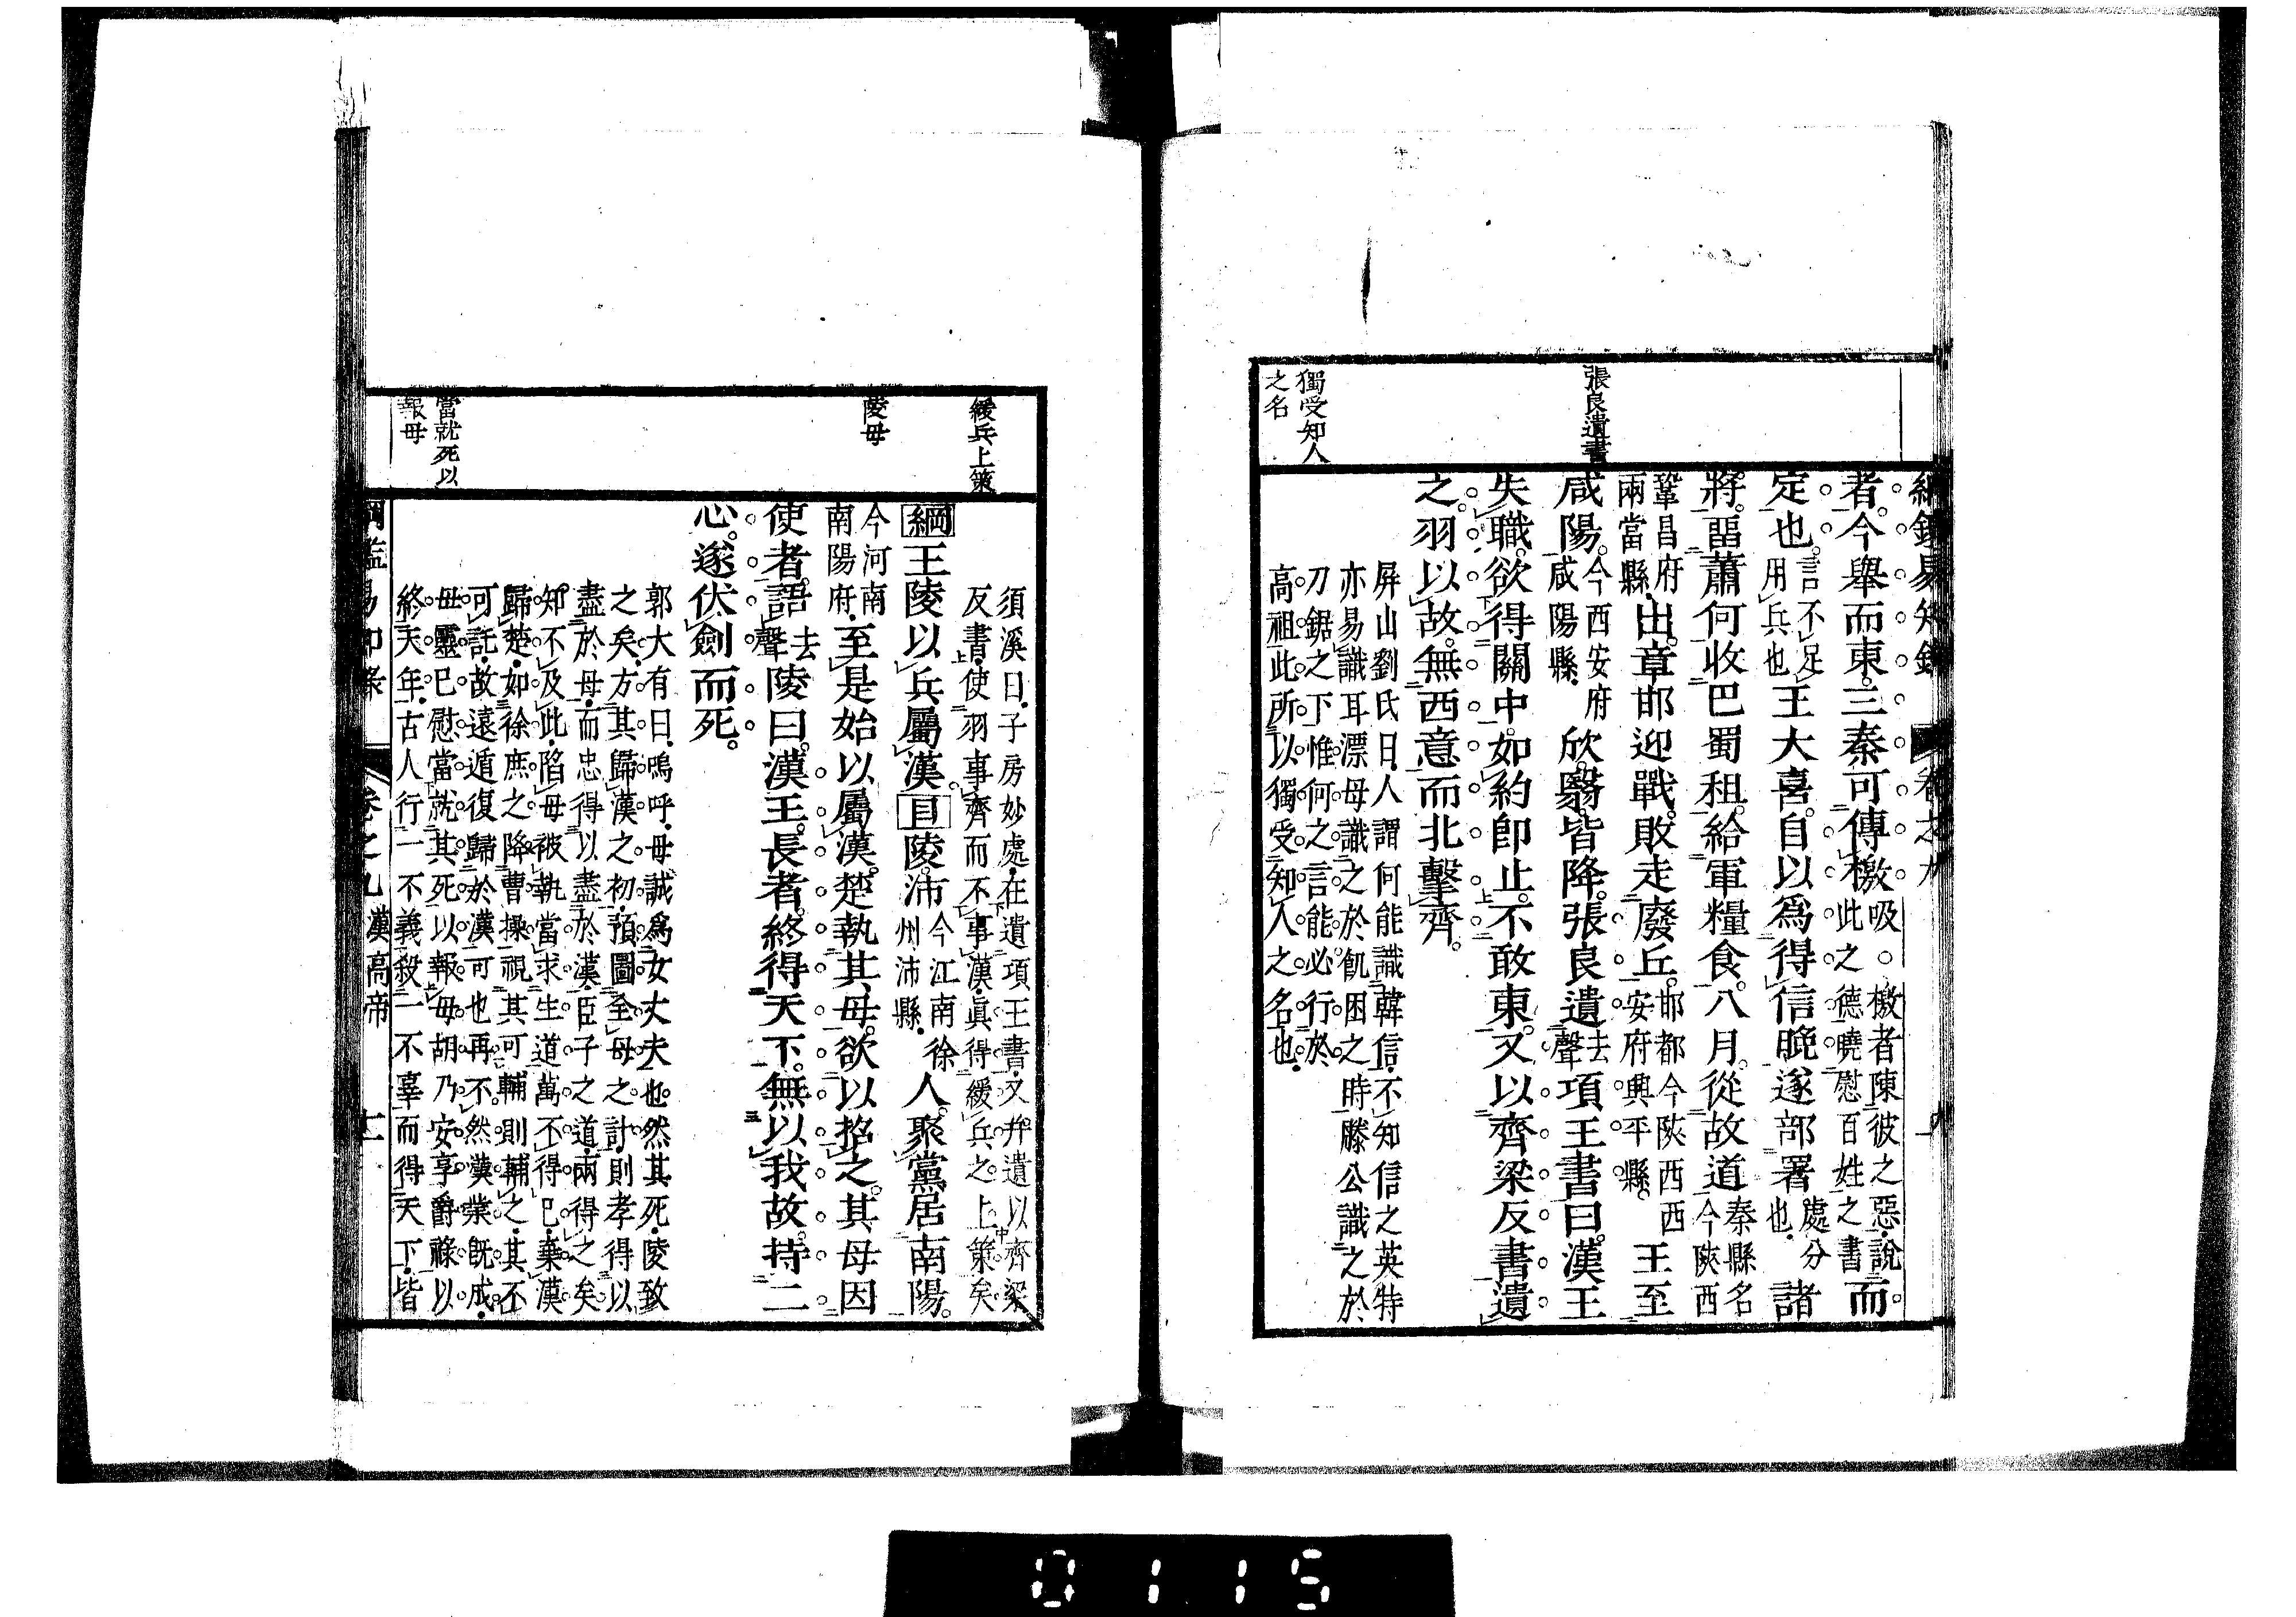 綱鑑易知錄 卷之九
張良遺書
獨受知人
之名
者。今舉而東。三秦可傳檄吸。檄者陳彼之惡說此之德曉慰百姓之書而
定也。言不足用兵也王大喜。自以爲得信晩遂部署處分也諸
將。畱蕭何收巴蜀租。給軍糧食。八月。從故道秦縣名今陝西
鞏昌府兩當縣出。章邯迎戰。敗走廢丘。邯都今陝西西安府興平縣王至
咸陽。今西安府咸陽縣欣翳皆降。張良遺去聲項王書曰。漢王
失職。欲得關中。如約卽止。不敢東。又以齊梁反書遺
之。羽以故。無西意而北擊齊。
屏山劉氏曰人謂何能識韓信不知信之英特
亦易識耳漂母識之於飢困之時滕公識之於
刀鋸之下惟何之言能必行於
高祖此所以獨受知人之名也
緩兵上策
陵母
當就死以
報母
須溪曰子房妙處在遺項王書又幷遺以齊梁
反書使羽事齊而不事漢眞得緩兵之上策矣
綱王陵以兵屬漢。目陵。沛今江南徐州沛縣人。聚黨居南陽。
今河南南陽府至是始以屬漢。楚執其母。欲以招之。其母因
使者。語去聲陵曰。漢王。長者。終得天下。無以我故。持二
心。遂伏劍而死。
郭大有曰嗚呼母誠爲女丈夫也然其死陵致
之矣方其歸漢之初預圖全母之計則孝得以
盡於母而忠得以盡於漢臣子之道兩得之矣
知不及此陷母被執當求生道萬不得已棄漢
歸楚如徐庶之降曹操視其可輔則輔之其不
可託故遠遁復歸於漢可也再不然漢業旣成
母靈已慰當就其死以報母胡乃安享爵祿以
終天年古人行一不義殺一不辜而得天下皆
綱鑑易知錄 卷之九 漢高帝 十一
0115